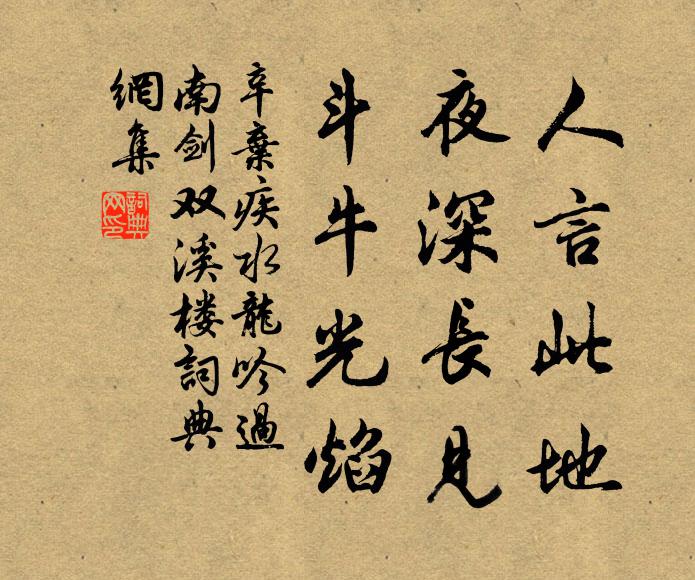 人言此地
夜深長見
斗牛光焰
辛棄疾水龍吟過
南劍双溪楼詞典
網集
詞典
网印